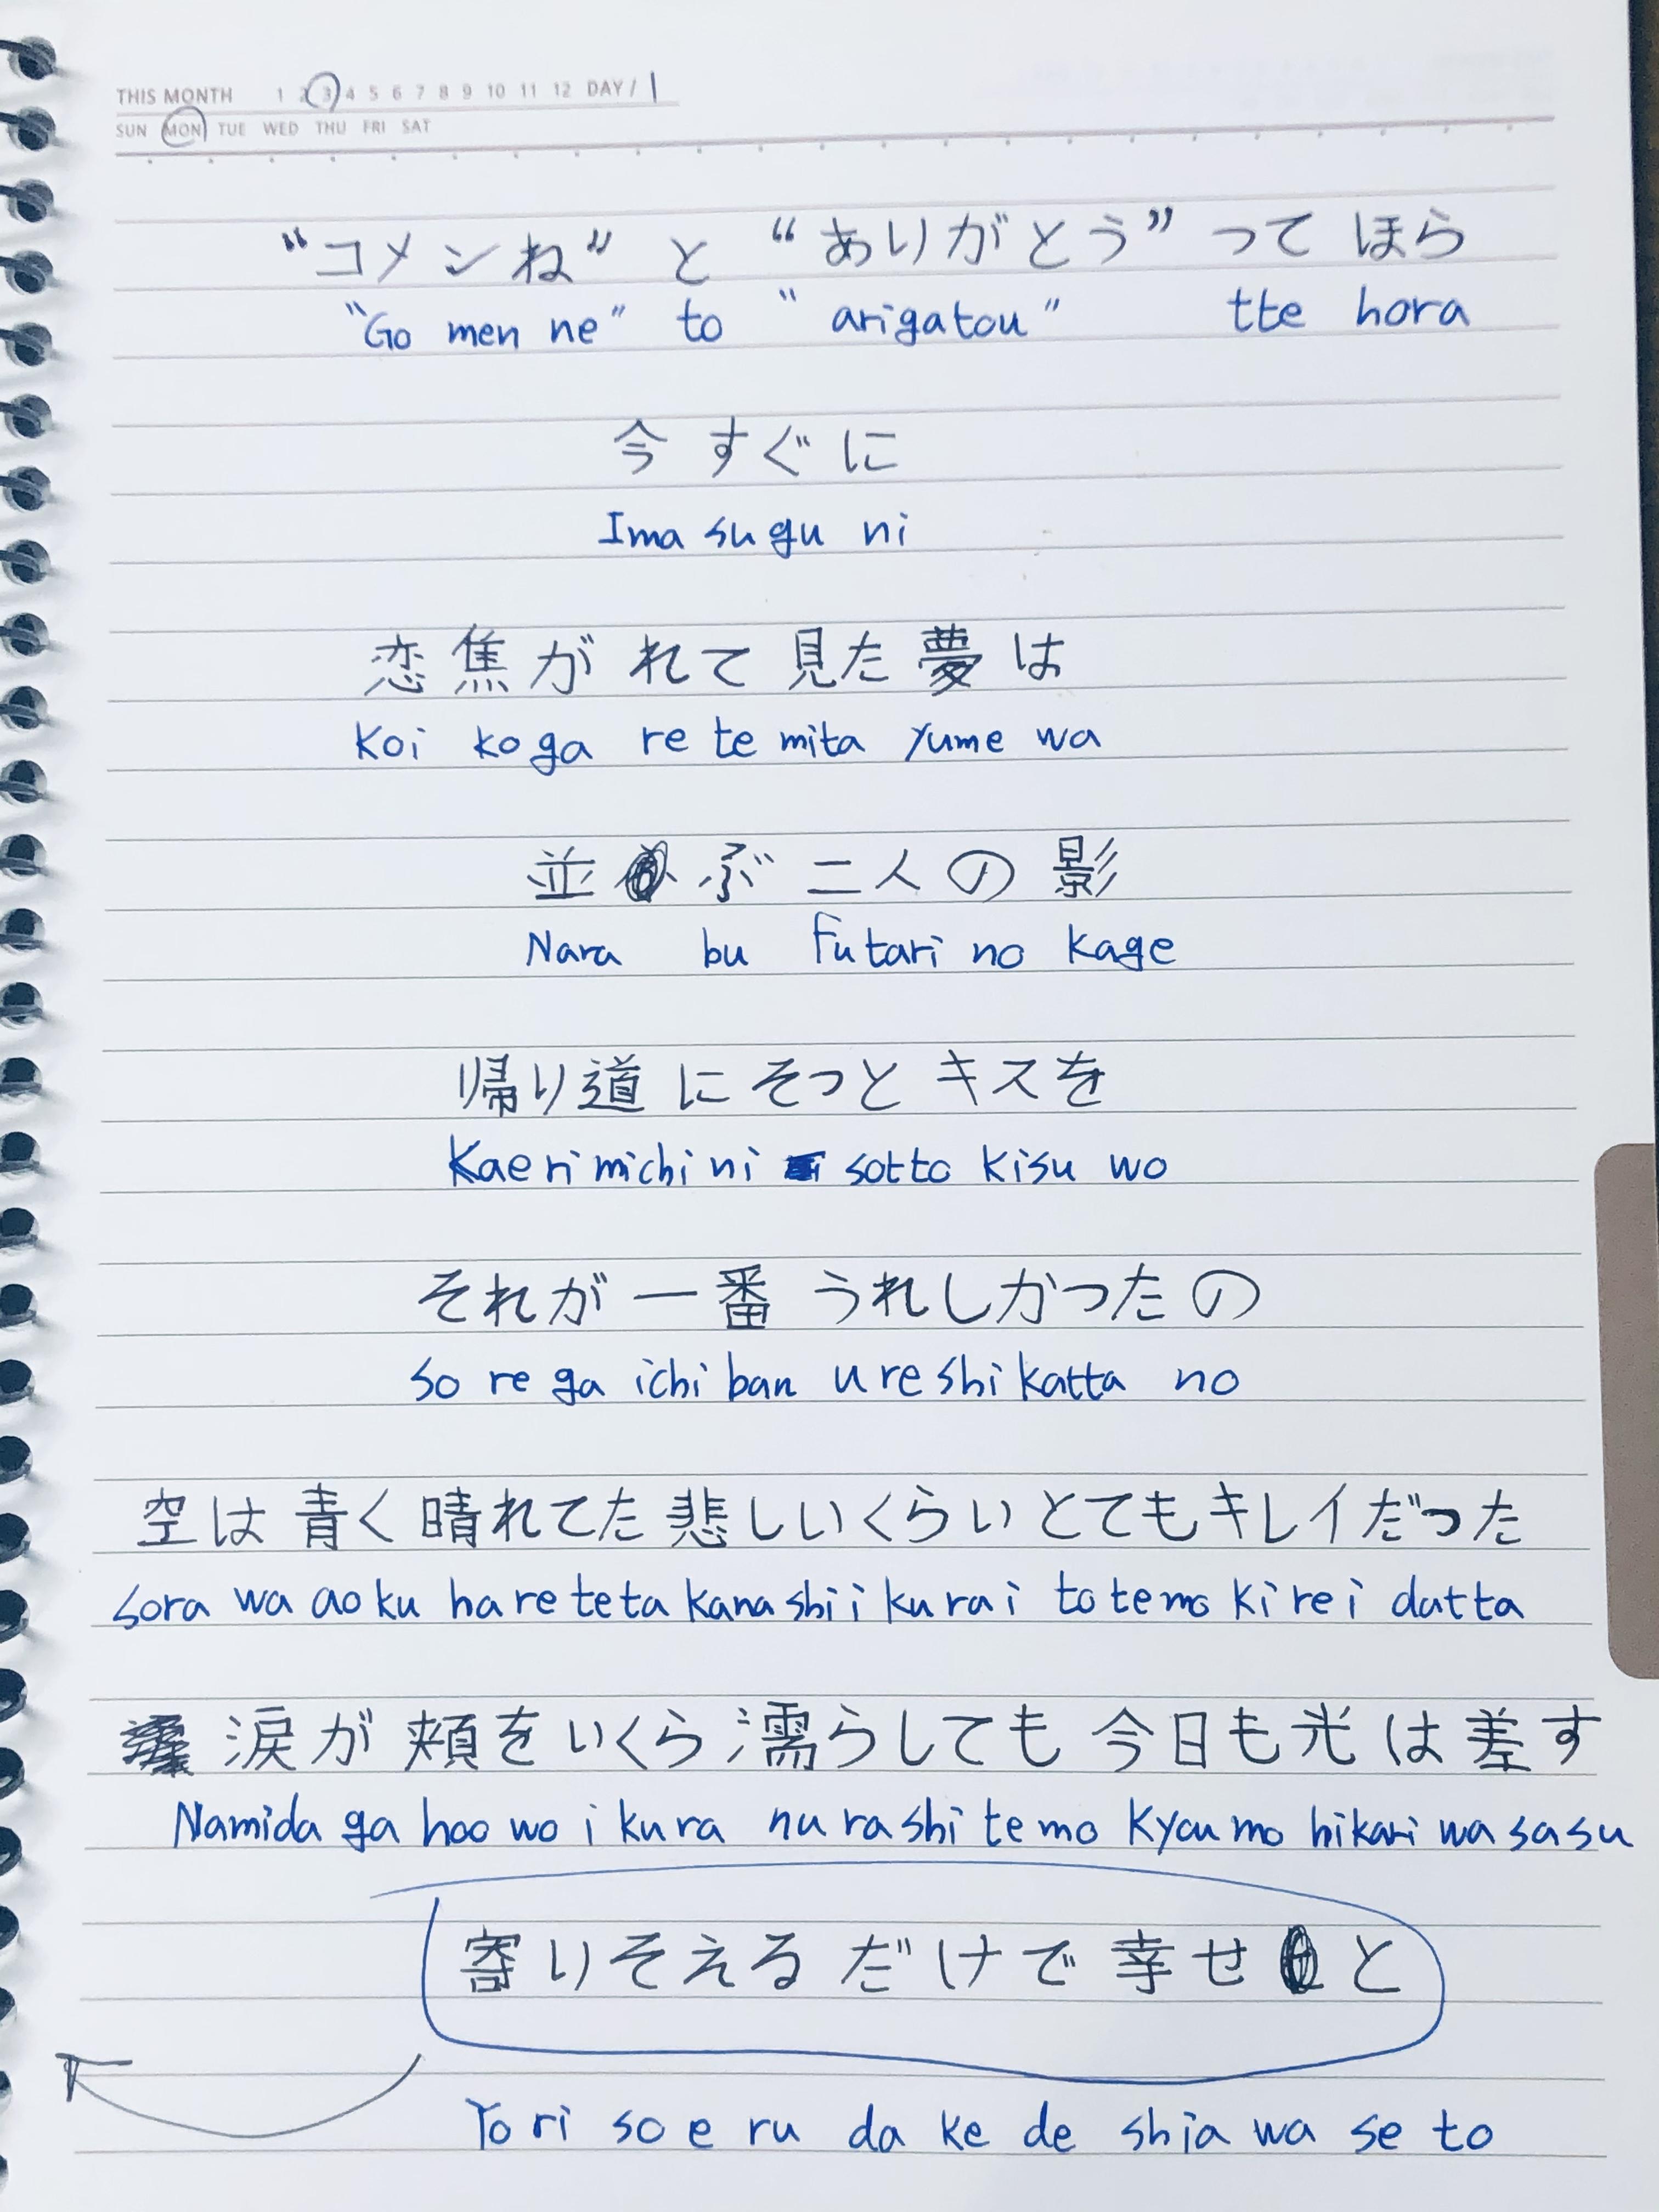 THIS MONTH 1 2 3 4 5 6 7 8 9 10 11 12 DAY / 1
SUN MON TUE WED THU FRI SAT
“コメンね” と “ありがとう” って ほら
“Go men ne” to “arigatou” tte hora
今 すぐに
Ima su gu ni
恋焦がれて見た夢は
Koi ko ga re te mita yume wa
並ぶ二人の影
Nara bu Futari no kage
帰り道にそっとキスを
Kaeri michi ni sotto kisu wo
それが一番うれしかったの
So re ga ichi ban u re shi katta no
空は青く晴れてた悲しいくらいとてもキレイだった
Sora wa ao ku ha re te ta kana shi i ku ra i to te mo ki re i datta
涙が頬をいくら濡らしても今日も光は差す
Namida ga hoo wo i ku ra nu ra shi te mo kyou mo hikari wa sa su
寄りそえるだけで幸せと
Yo ri so e ru da ke de shia wa se to